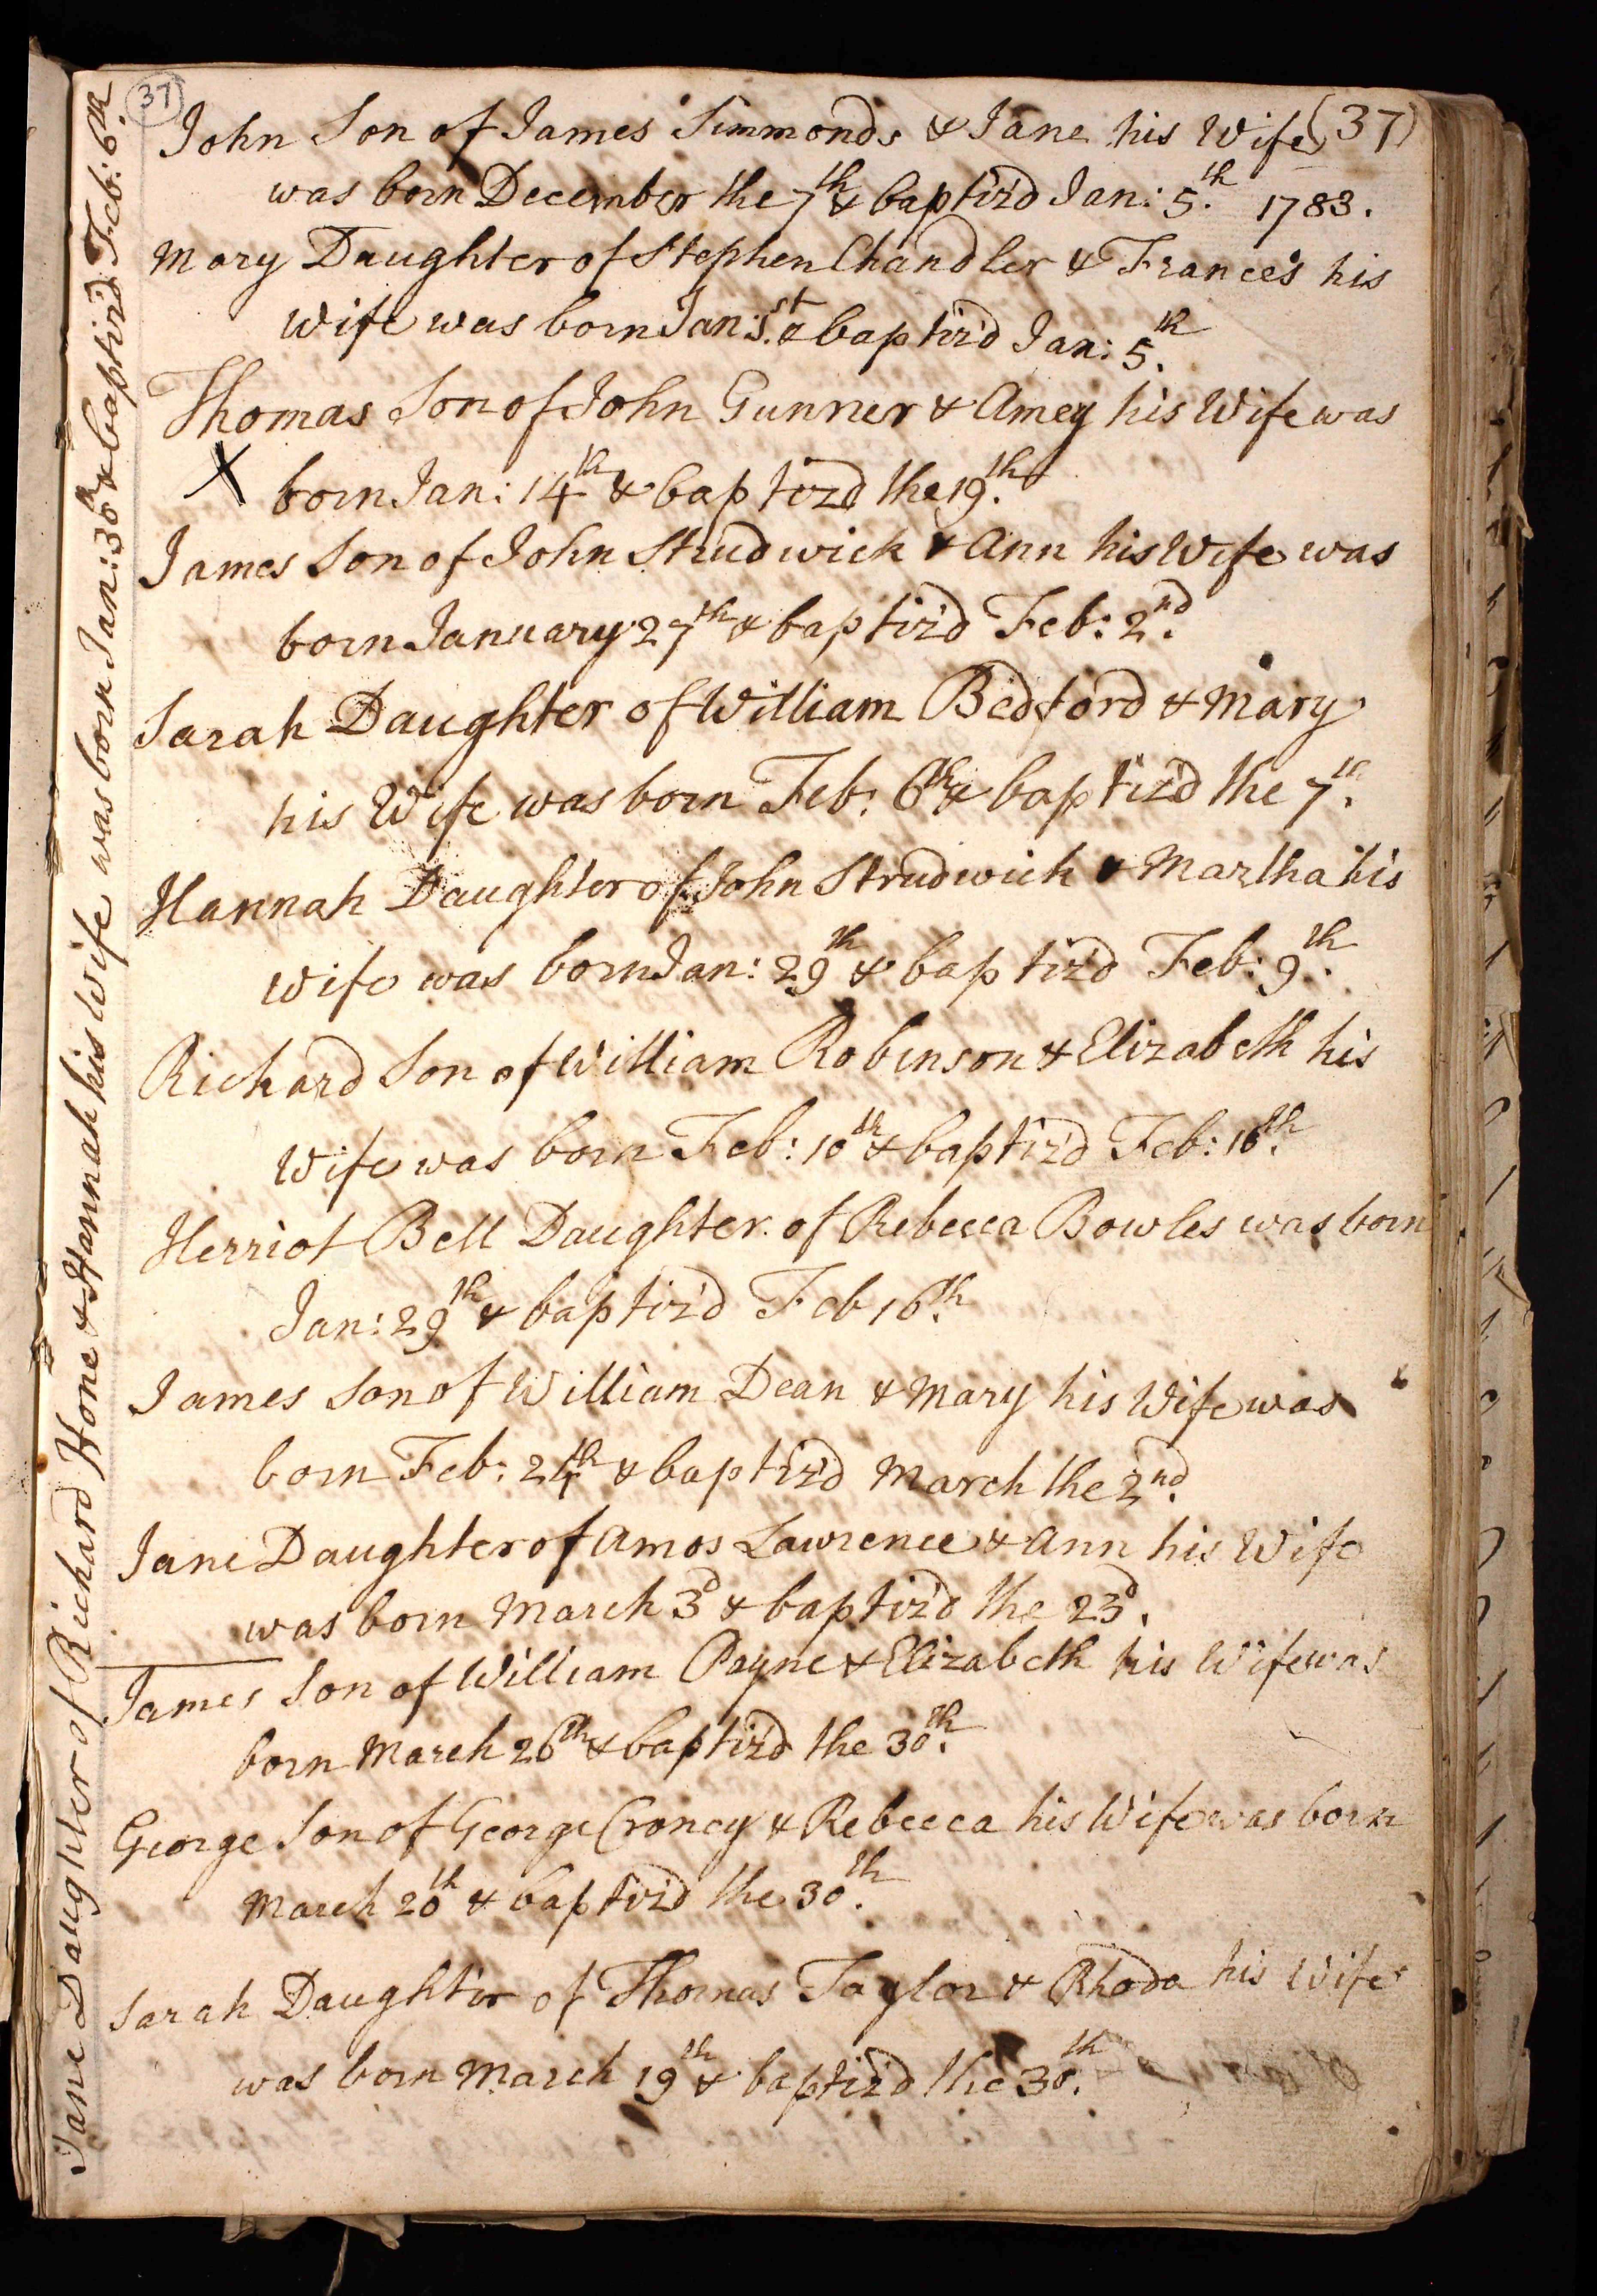 37
John Son of James Simmonds & Jane his Wife (37)
was born December the 7th & baptiz'd Jan: 5th. 1783.
Mary Daughter of Stephen Chandler & Frances his
Wife was born Jan: 1st. & baptiz'd Jan: 5th.
Thomas Son of John Gunner & Amey his Wife was
X born Jan: 14th & baptizd the 19th.
James Son of John Strudwick & Ann his Wife was
born January 27th & baptiz'd Feb: 2nd.
Sarah Daughter of William Bedford & Mary
his Wife was born Feb: 6th & baptiz'd the 7th.
Hannah Daughter of John Strudwick & Martha his
Wife was born Jan: 29th & baptiz'd Feb: 9th.
Richard Son of William Robinson & Elizabeth his
Wife was born Feb: 10th & baptiz'd Feb: 16th.
Herriot Bell Daughter of Rebecca Bowles was born
Jan: 29th & baptiz'd Feb 16th.
James Son of William Dean & Mary his Wife was
born Feb: 24th & baptiz'd March the 2nd.
Jane Daughter of Amos Lawrence & Ann his Wife
was born March 3d & baptiz'd the 23d.
James Son of William Payne & Elizabeth his Wife was
born March 26th & baptiz'd the 30th.
George Son of George Croncy & Rebecca his Wife was born
March 20th & baptiz'd the 30th.
Sarah Daughter of Thomas Taylor & Rhoda his Wife
was born March 19th & baptiz'd the 30th.
Jane Daughter of Richard Hone & Hannah his Wife was born Jan: 30th & baptiz'd Feb: 6th.